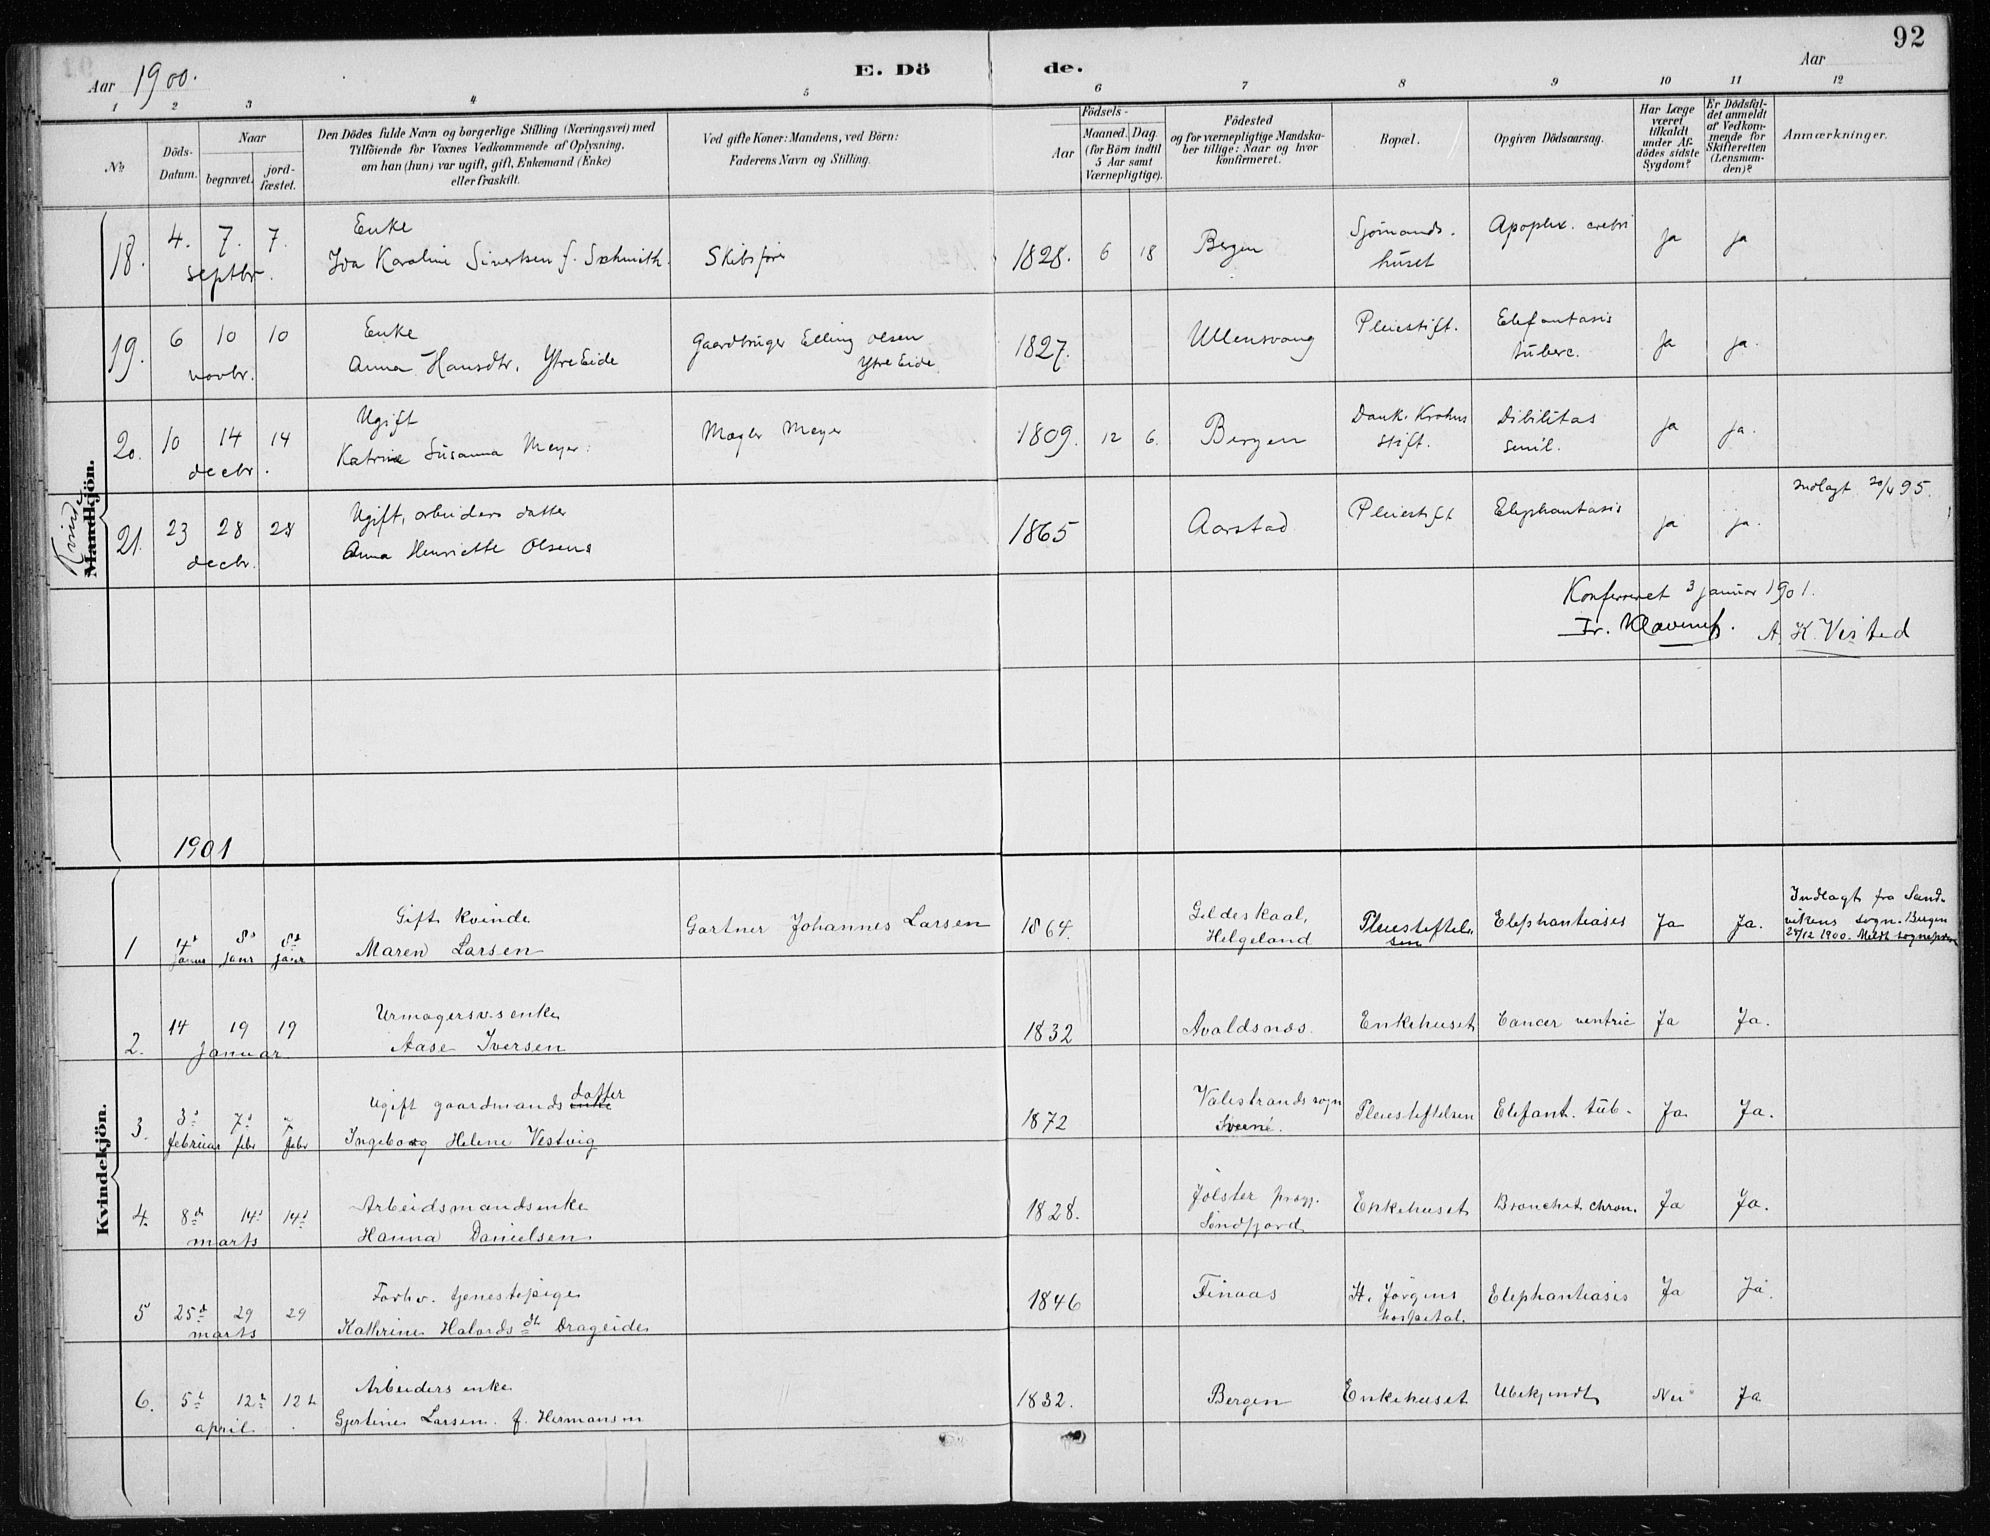 92
Aar 1900.
E. Döde.
Aar
1 2 3 4 5 6 7 8 9 10 11 12
No.
Döds-Datum.
Naar
begravet.
jord-fæstet.
Den Dödes fulde Navn og borgerlige Stilling (Næringsvei) med
Tilföiende for Voxnes Vedkommende af Oplysning,
om han (hun) var ugift, gift, Enkemand (Enke)
eller fraskilt.
Ved gifte Koner: Mandens, ved Börn:
Faderens Navn og Stilling.
Födsels-
Aar
Maaned. Dag.
(for Börn indtil
5 Aar samt
Værnepligtige).
Födested
og for værnepligtige Mandska-
ber tillige: Naar og hvor
konfirmeret.
Bopæl.
Opgiven Dödsaarsag.
Har Læge
været
tilkaldt
under Af-
dödes sidste
Sygdom?
Er Dödsfal-
det anmeldt
af Vedkom-
mende for
Skifteretten
(Lensman-
den)?
Anmærkninger.
Kvinde
Mandkjön.
18. 4. 7. 7. septbr.
Enke
Ida Karoline Sivertsen f. Schmith.
Skibsfører
1828. 6 18
Bergen
Sjömands.
huset
Apoplex. crebri
ja ja
19. 6 10 10 novbr.
Enke
Anna Hansdtr. Ytre Eide
Gaardbruger Elling Olsen
Ytre Eide
1827.
Ullensvang
Pleiestift.
Elefantasis
tuberc.
ja ja.
20. 10 14 14 decbr.
Ugift
Katrine Susanna Meyer.
Mægler Meyer
1809. 12 6.
Bergen
Dank. Krohns
Stift.
Dibilitas
senil.
ja ja.
21. 23 28 28 decbr.
Ugift, arbeiders datter
Anna Henriette Olsen
1865
Aarstad
Pleiestift
Elephantasis
ja ja.
Indlagt 20/4 95.
Konfereret 3 januar 1901.
A. K. Vested
1901
Kvindekjön.
1 4d 8d 8d januar janr janr
Gift kvinde
Maren Larsen
Gartner Johannes Larsen
1864.
Gildeskaal,
Helgeland
Pleiestiftel-
sen
Elephantiasis
Ja Ja.
Indlagt fra Sand-
vikens sogn. Bergen
28/12 1900. Meldt sogneprest
2. 14 19 19 Januar
Urmagersvsenke
Aase Iversen
1832
Avaldsnæs.
Enkehuset
Cancer ventric
Ja Ja.
3. 3d 7d 7 februar febr febr
Ugift gaardmands enke datter
Ingeborg Helene Vestvig
1872
Valestrands sogn
Sveenė.
Pleiestiftelsen
Elefant. tub.
Ja Ja.
4. 8de 14d 14d marts
Arbeidsmandsenke
Hanna Danielsen.
1828.
Jölster prgj.
Söndfjord
Enkehuset
Bronchit chron.
Ja Ja.
5 25d 29 29 marts
Forhv. tjenestepige
Kathrine Halvordsdtr Drageide
1846
Finaas
St. Jörgens
hospital.
Elephantiasis
Ja Ja.
6. 5t 12t 12t april.
Arbeiders enke
Gjertine Larsen. f. Hermansen
1832.
Bergen
Enkehuset
Ubekjendt
Nei Ja